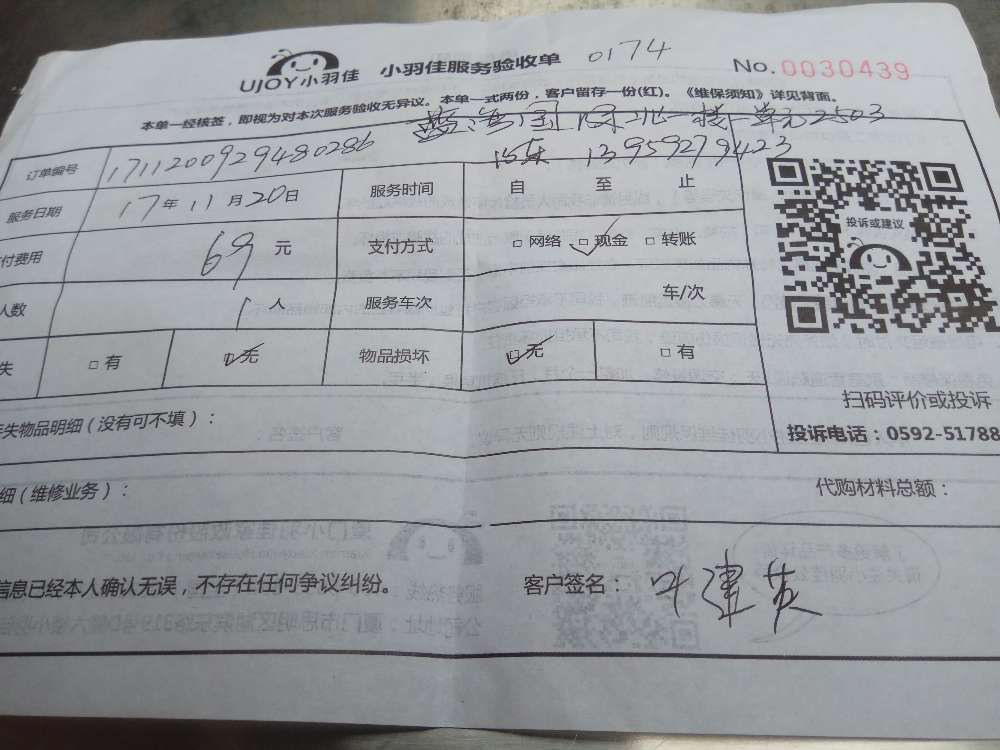 UJOY小羽佳 小羽佳服务验收单 0174 No.0030439
本单一经核签，即视为对本次服务验收无异议。本单一式两份，客户留存一份(红)。《维保须知》详见背面。
2503
订单编号 1711200929480286 13959279423
服务日期 17年11月20日 服务时间 自 至 止
付费用 69元 支付方式 □网络 ☑现金 □转账
人数 1人 服务车次 车/次
失 □有 ☑无 物品损坏 ☑无 □有
投诉或建议
扫码评价或投诉
失物品明细（没有可不填）：
投诉电话：0592-51788
细（维修业务）： 代购材料总额：
信息已经本人确认无误，不存在任何争议纠纷。 客户签名：叶建英